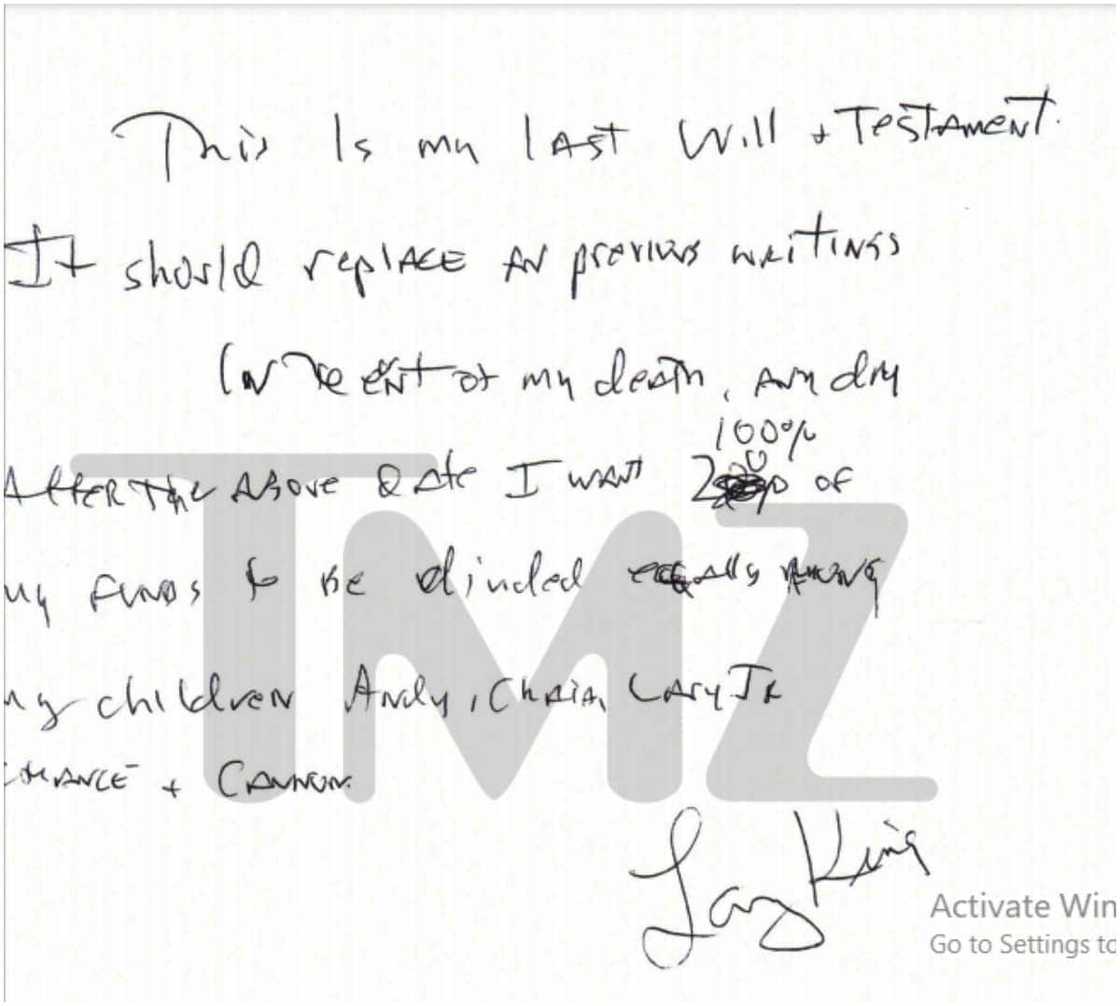 This Is my lAst Will + TesTAmenT.
It should replAce All previous writings
In the event of my death, Any dAy
100%
After the Above dAte I wAnt of
my funds to be divided equAlly Among
my children Andy, ChAiA, LArry Jr
ChAnce + CAnnon.
Larry King
TMZ
Activate Win
Go to Settings to